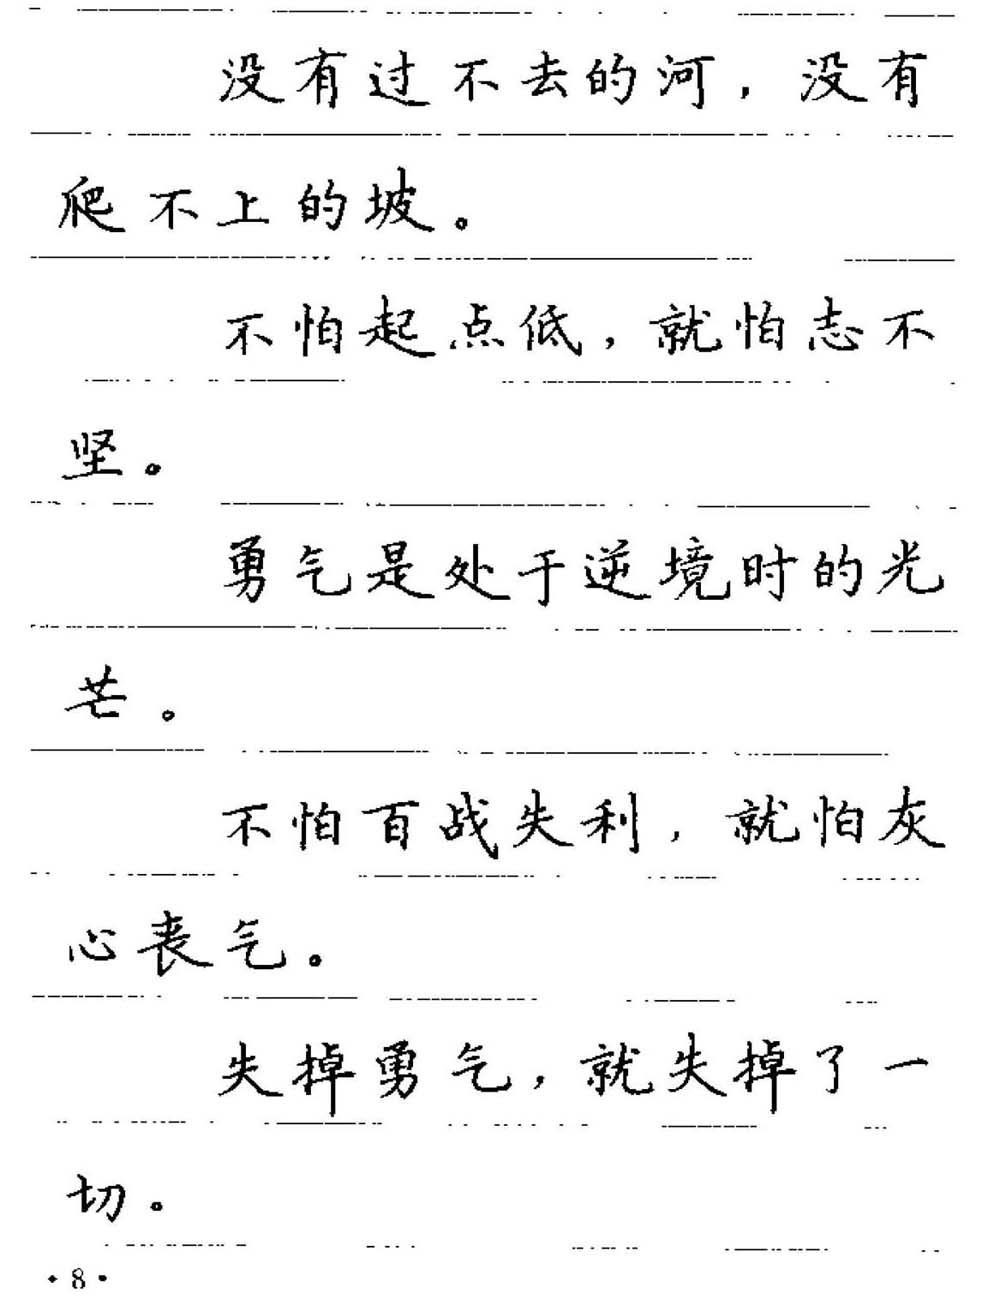 没有过不去的河，没有
爬不上的坡。
不怕起点低，就怕志不
坚。
勇气是处于逆境时的光
芒。
不怕百战失利，就怕灰
心丧气。
失掉勇气，就失掉了一
切。
·8·